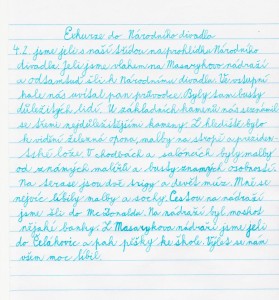 Exkurze do Národního divadla
4.2. jsme jeli s naší třídou na prohlídku Národního
divadla. Jeli jsme vlakem na Masarykovo nádraží
a odsamsud šli k Národnímu divadlu. Ve vstupní
hale nás uvítal pan průvodce. Byly tam busty
důležitých lidí. U základních kamenů nás seznámil
se třemi nejdůležitějšími kameny. Z hlediště bylo
k vidění železná opona, malby na stropě a preziden-
tské lóže. V chodbách a salónech byly malby
od známých malířů a busty známých osobností.
Na terase jsou dvě trigy a devět múz. Mně se
nejvíc líbily malby a sochy. Cestou na nádraží
jsme šli do Mc Donalda. Na nádraží byl
nějaké banky. Z Masarykova nádraží jsme jeli
do Čelákovic a pak pěšky ke škole. Výlet se nám
všem moc líbil.